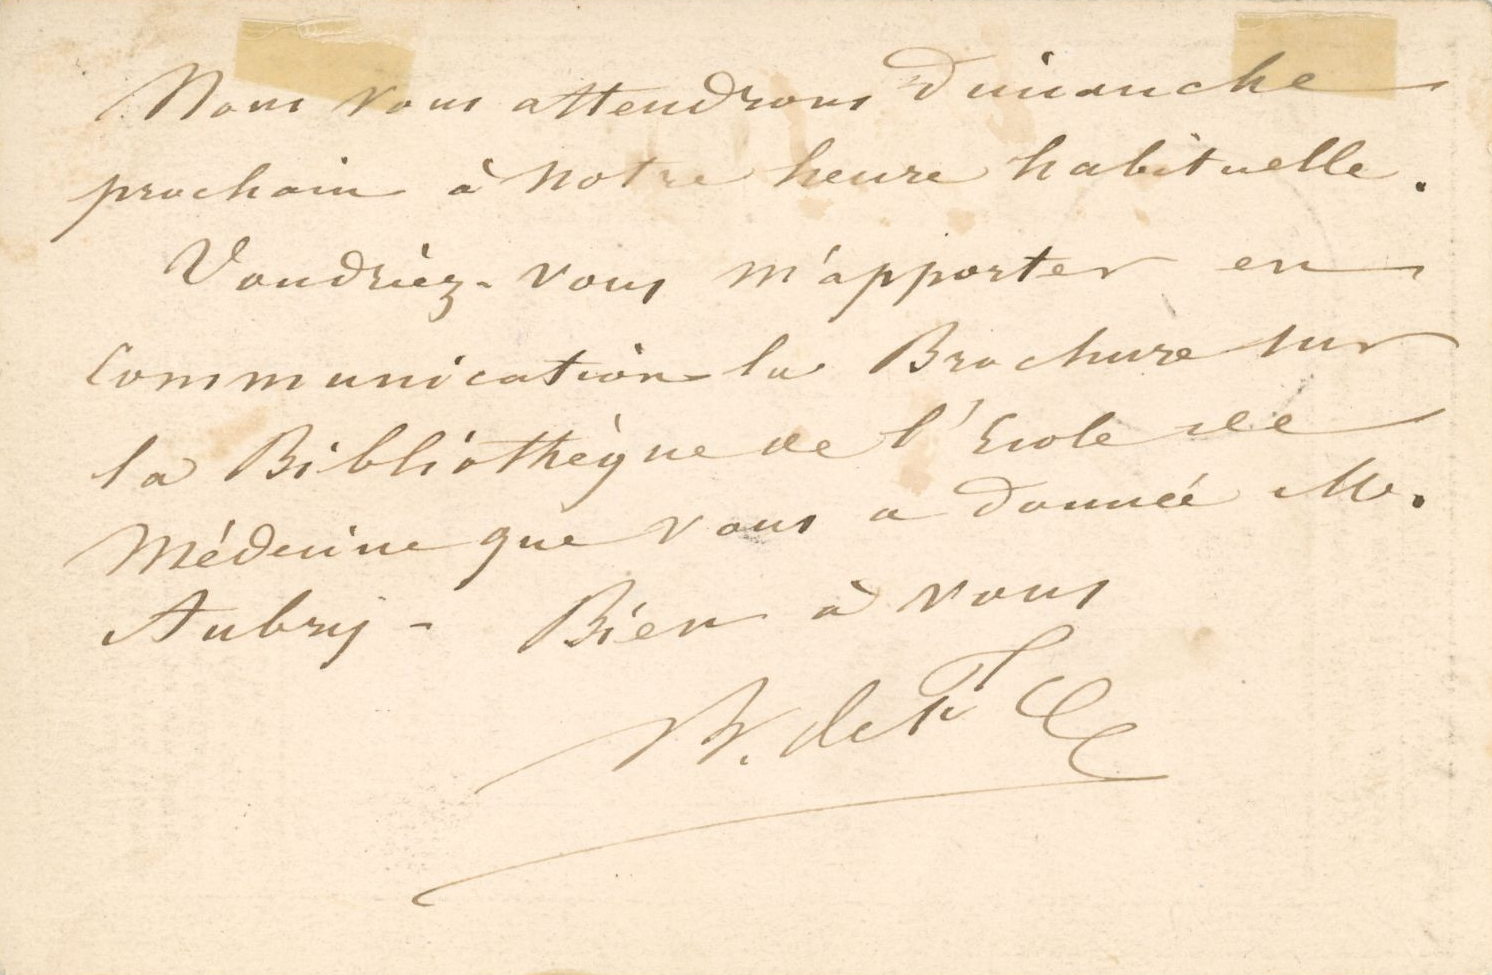 Nous vous attendrons Dimanche
prochain à notre heure habituelle.
Voudriez-vous m'apporter en
Communication la Brochure sur
la Bibliothèque de l'Ecole de
Médecine que vous a donnée M.
Aubry - Bien à vous